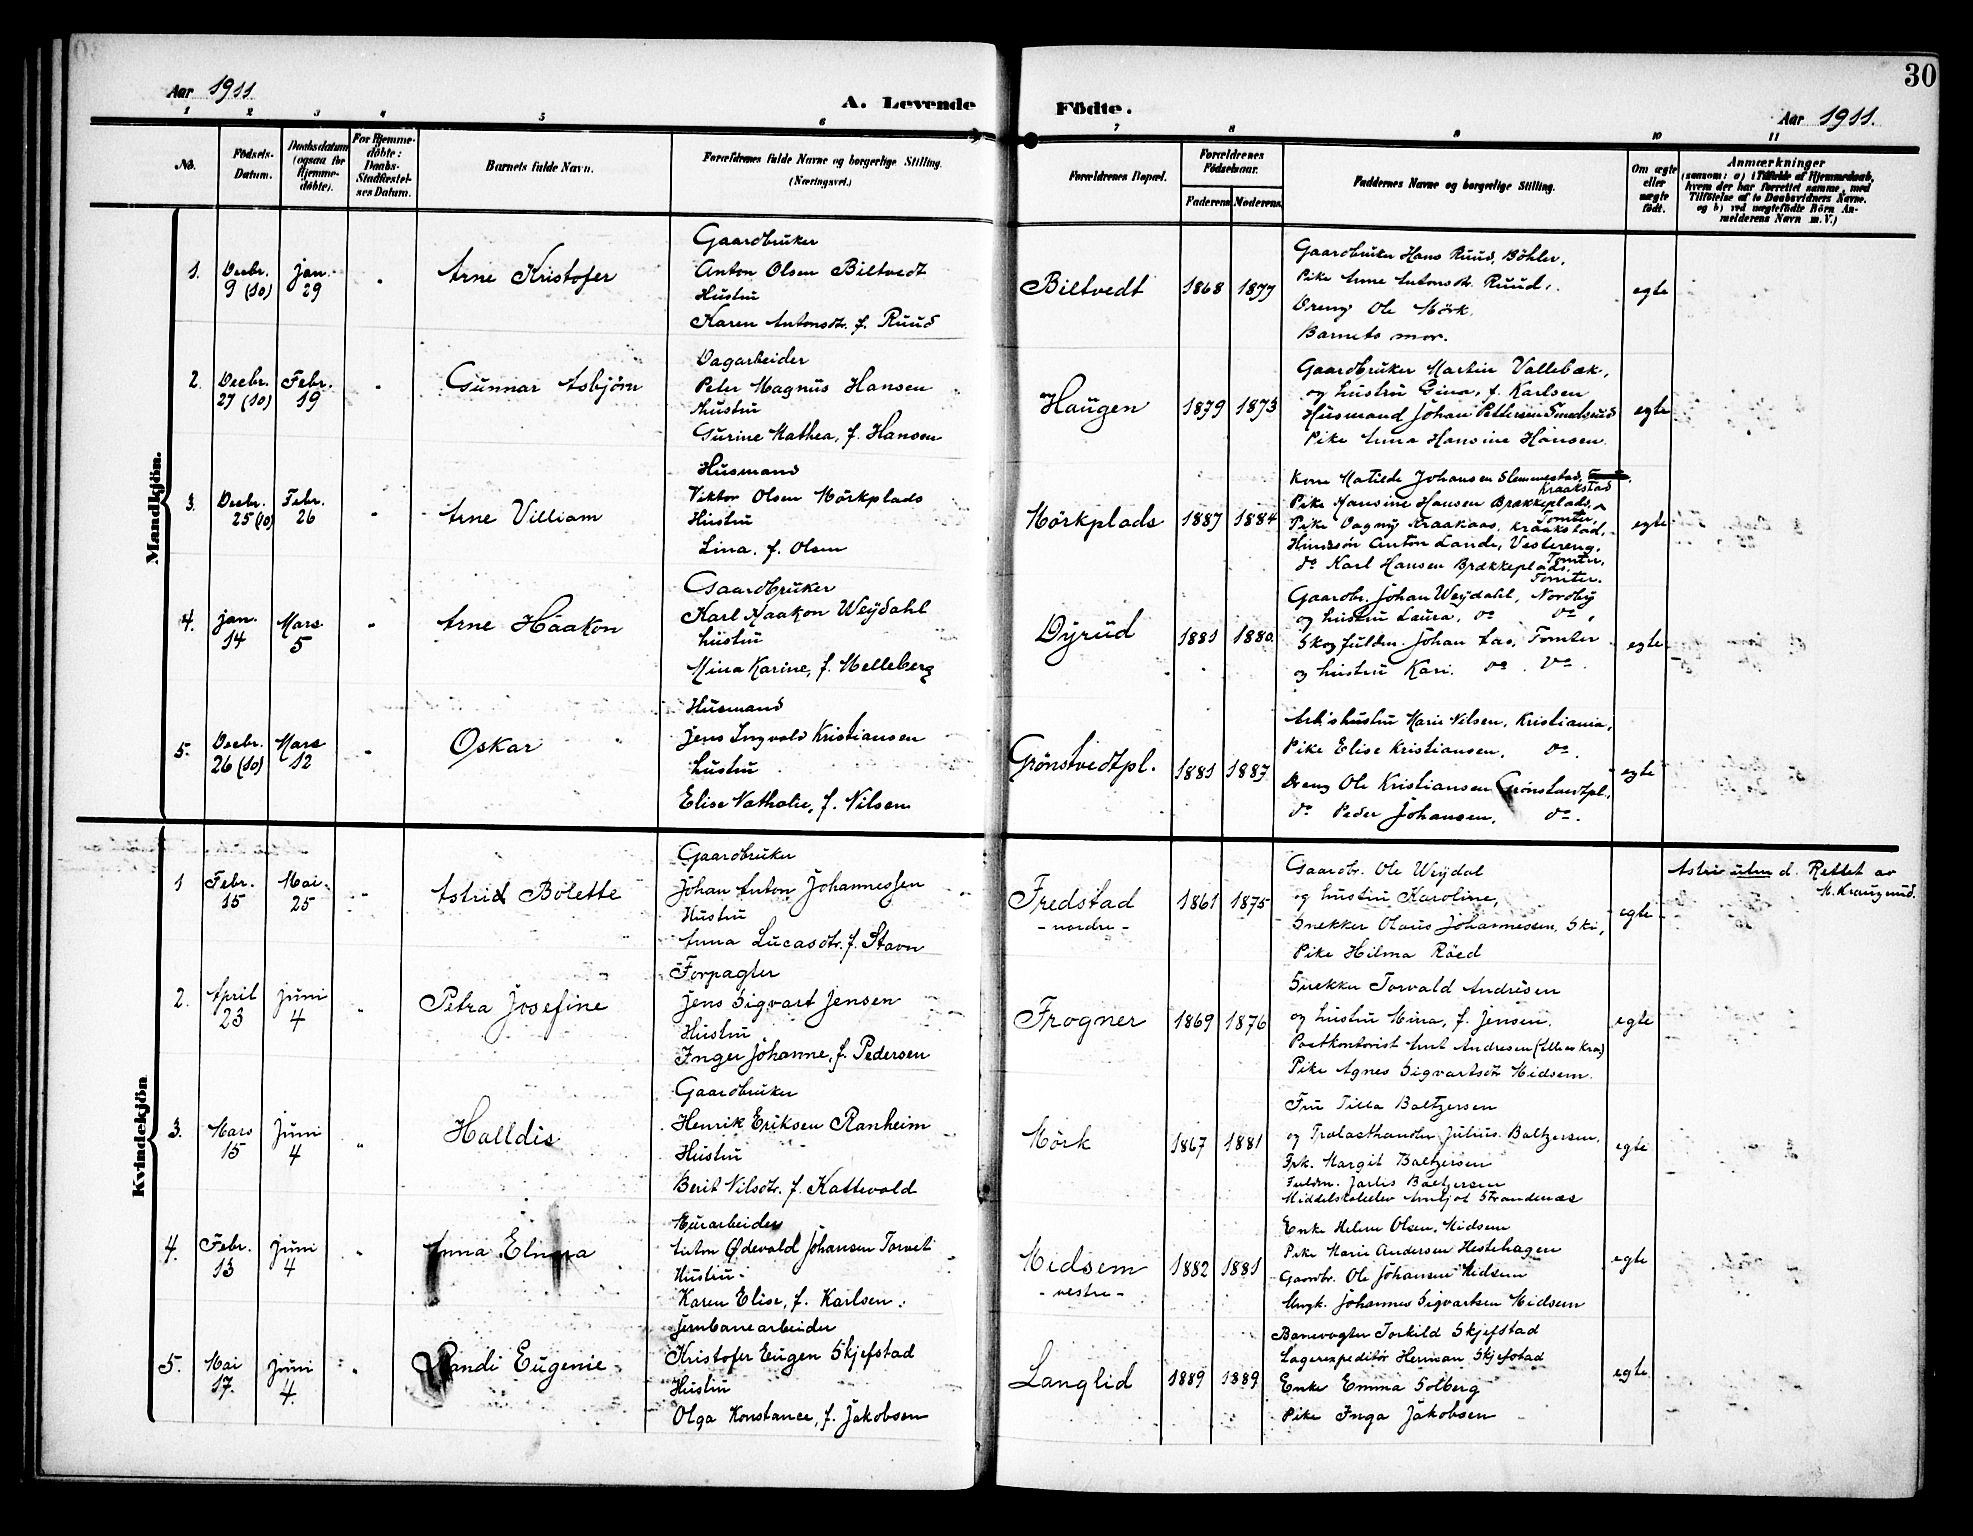 30
Aar 1911
A. Levende Födte.
Aar 1911.
1 2 3 4 5 6 7 8 9 10 11
No.
Födsels-Datum.
Daabsdatum (ogsaa for Hjemme-döbte).
For Hjemme-döbte: Daabs-Stadfæstel-ses Datum.
Barnets fulde Navn.
Forældrenes fulde Navne og borgerlige Stilling. (Næringsvei.)
Forældrenes Bopæl.
Forældrenes Födselsaar.
Faderens Moderens
Faddernes Navne og borgerlige Stilling.
Om ægte eller uægte födt.
Anmærkninger
(saasom: a) i Tilfælde af Hjemmedaab,
hvem der har forrettet samme, med
Tilföielse af to Daabsvidners Navne.
og b) ved uægtefödte Börn An-
melderens Navn m. V.)
Mandkjön.
1. Decbr. 9 (10) Jan. 29 " Arne Kristofer
Gaardbruker
Anton Olsen Biltvedt
Hustru
Karen Antonsdtr. f. Ruud
Biltvedt 1868 1877
Gaardbruker Hans Ruud, Böhler,
Pike Anne Antonsdt. Ruud,
Dreng Ole Mörk.
Barnets mor.
egte
2. Decbr. 27 (10) Febr. 19 " Gunnar Asbjörn
Dagarbeider
Peter Magnus Hansen
Hustru
Gurine Mathea, f. Hansen
Haugen 1879 1873
Gaardbruker Martin Vallebæk,
og hustru Gina, f. Karlsen
Husmand Johan Pettersen Smedsrud
Pike Anna Hansine Hansen.
egte
3. Decbr. 25 (10) Febr. 26 " Arne Villiam
Husmand
Viktor Olsen Mörkplads
Hustru
Lina, f. Olsen
Mörkplads 1887 1884
Kone Matilde Johansen Slemmestad,
Kraakstad
Pike Hansine Hansen Brækkeplads,
Tomter
Pike Dagny Kraakaas, Kraakstad,
Anton Lande, Vestereng,
Tomter,
do Karl Hansen Brækkeplads,
Tomter.
egte
4. Jan. 14 Mars 5 " Arne Håakon
Gaardbruker
Karl Haakon Weydahl
hustru
Mina Karine, f. Melleberg
Dyrud 1881 1880
Gaardbr. Johan Weydahl, Nordby
og hustru Laura, do do,
Skogfuldm. Johan Aas, Tomter
og hustru Kari. do. do.
egte
5. Decbr. 26 (10) Mars 12 " Oskar
Husmand
Jens Ingvald Kristiansen
hustru
Elise Nathalie, f. Nilsen
Grönstvedtpl. 1881 1887
Arb's hustru Marie Nilsen, Kristiania,
Pike Elise Kristiansen, do
Dreng Ole Kristiansen Grönstvedtpl.,
do Peder Johansen, do.
egte
Kvindekjön
1 Febr. 15 Mai 25 " Astrid Bolette
Gaardbruker
Johan Anton Johannessen
Hustru
Anna Lucasdtr. f. Stavn
Fredstad
- nordre -
1861 1875
Gaardbr. Ole Weydal
og hustru Karoline,
Snekker Olaus Johannessen, Ski,
Pike Hilma Röed
egte
Astri uten d. Rettet av
2. April 23 Juni 4 " Petra Josefine
Forpagter
Jens Sigvart Jensen
Hustru
Inger Johanne, f. Pedersen
Frogner 1869 1876
Snekker Torvald Andresen
og hustru Mina, f. Jensen.
Postkontorist Amt Andresen
Pike Agnes Sigvartsdt Midsem.
egte
3. Mars 15 Juni 4 " Halldis
Gaardbruker
Henrik Eriksen Ranheim
Hustru
Berit Nilsdtr. f. Kattevold
Mörk 1867 1881
Fru Tilla Baltzersen
og Trælasthandler Julius Baltzersen,
Frk. Margit Baltzersen
Fuldm. Jarlis Baltzersen
Middelskoleelev Strandenæs
egte
4. Febr. 13 Juni 4 " Anna Elnora
Murarbeider
Anton Ødevald Johansen Torvet
Hustru
Karen Elise, f. Karlsen.
Midsem
- vestre -
1882 1881
Enke Helene Olsen, Midsem
Pike Marie Andersen Hestehagen
Gaardbr. Ole Johansen Midsem
Ungk. Johannes Sigvartsen Midsem
egte
5. Mai 17. Juni 4. " Randi Eugenie
Jernbanearbeider
Kristofer Eugen Skjefstad
Hustru
Olga Konstance, f. Jakobsen
Langlid 1889 1889
Banevogter Torkild Skjefstad
Lagerexpeditör Herman Skjefstad
Enke Emma Solberg
Pike Inga Jakobsen
egte